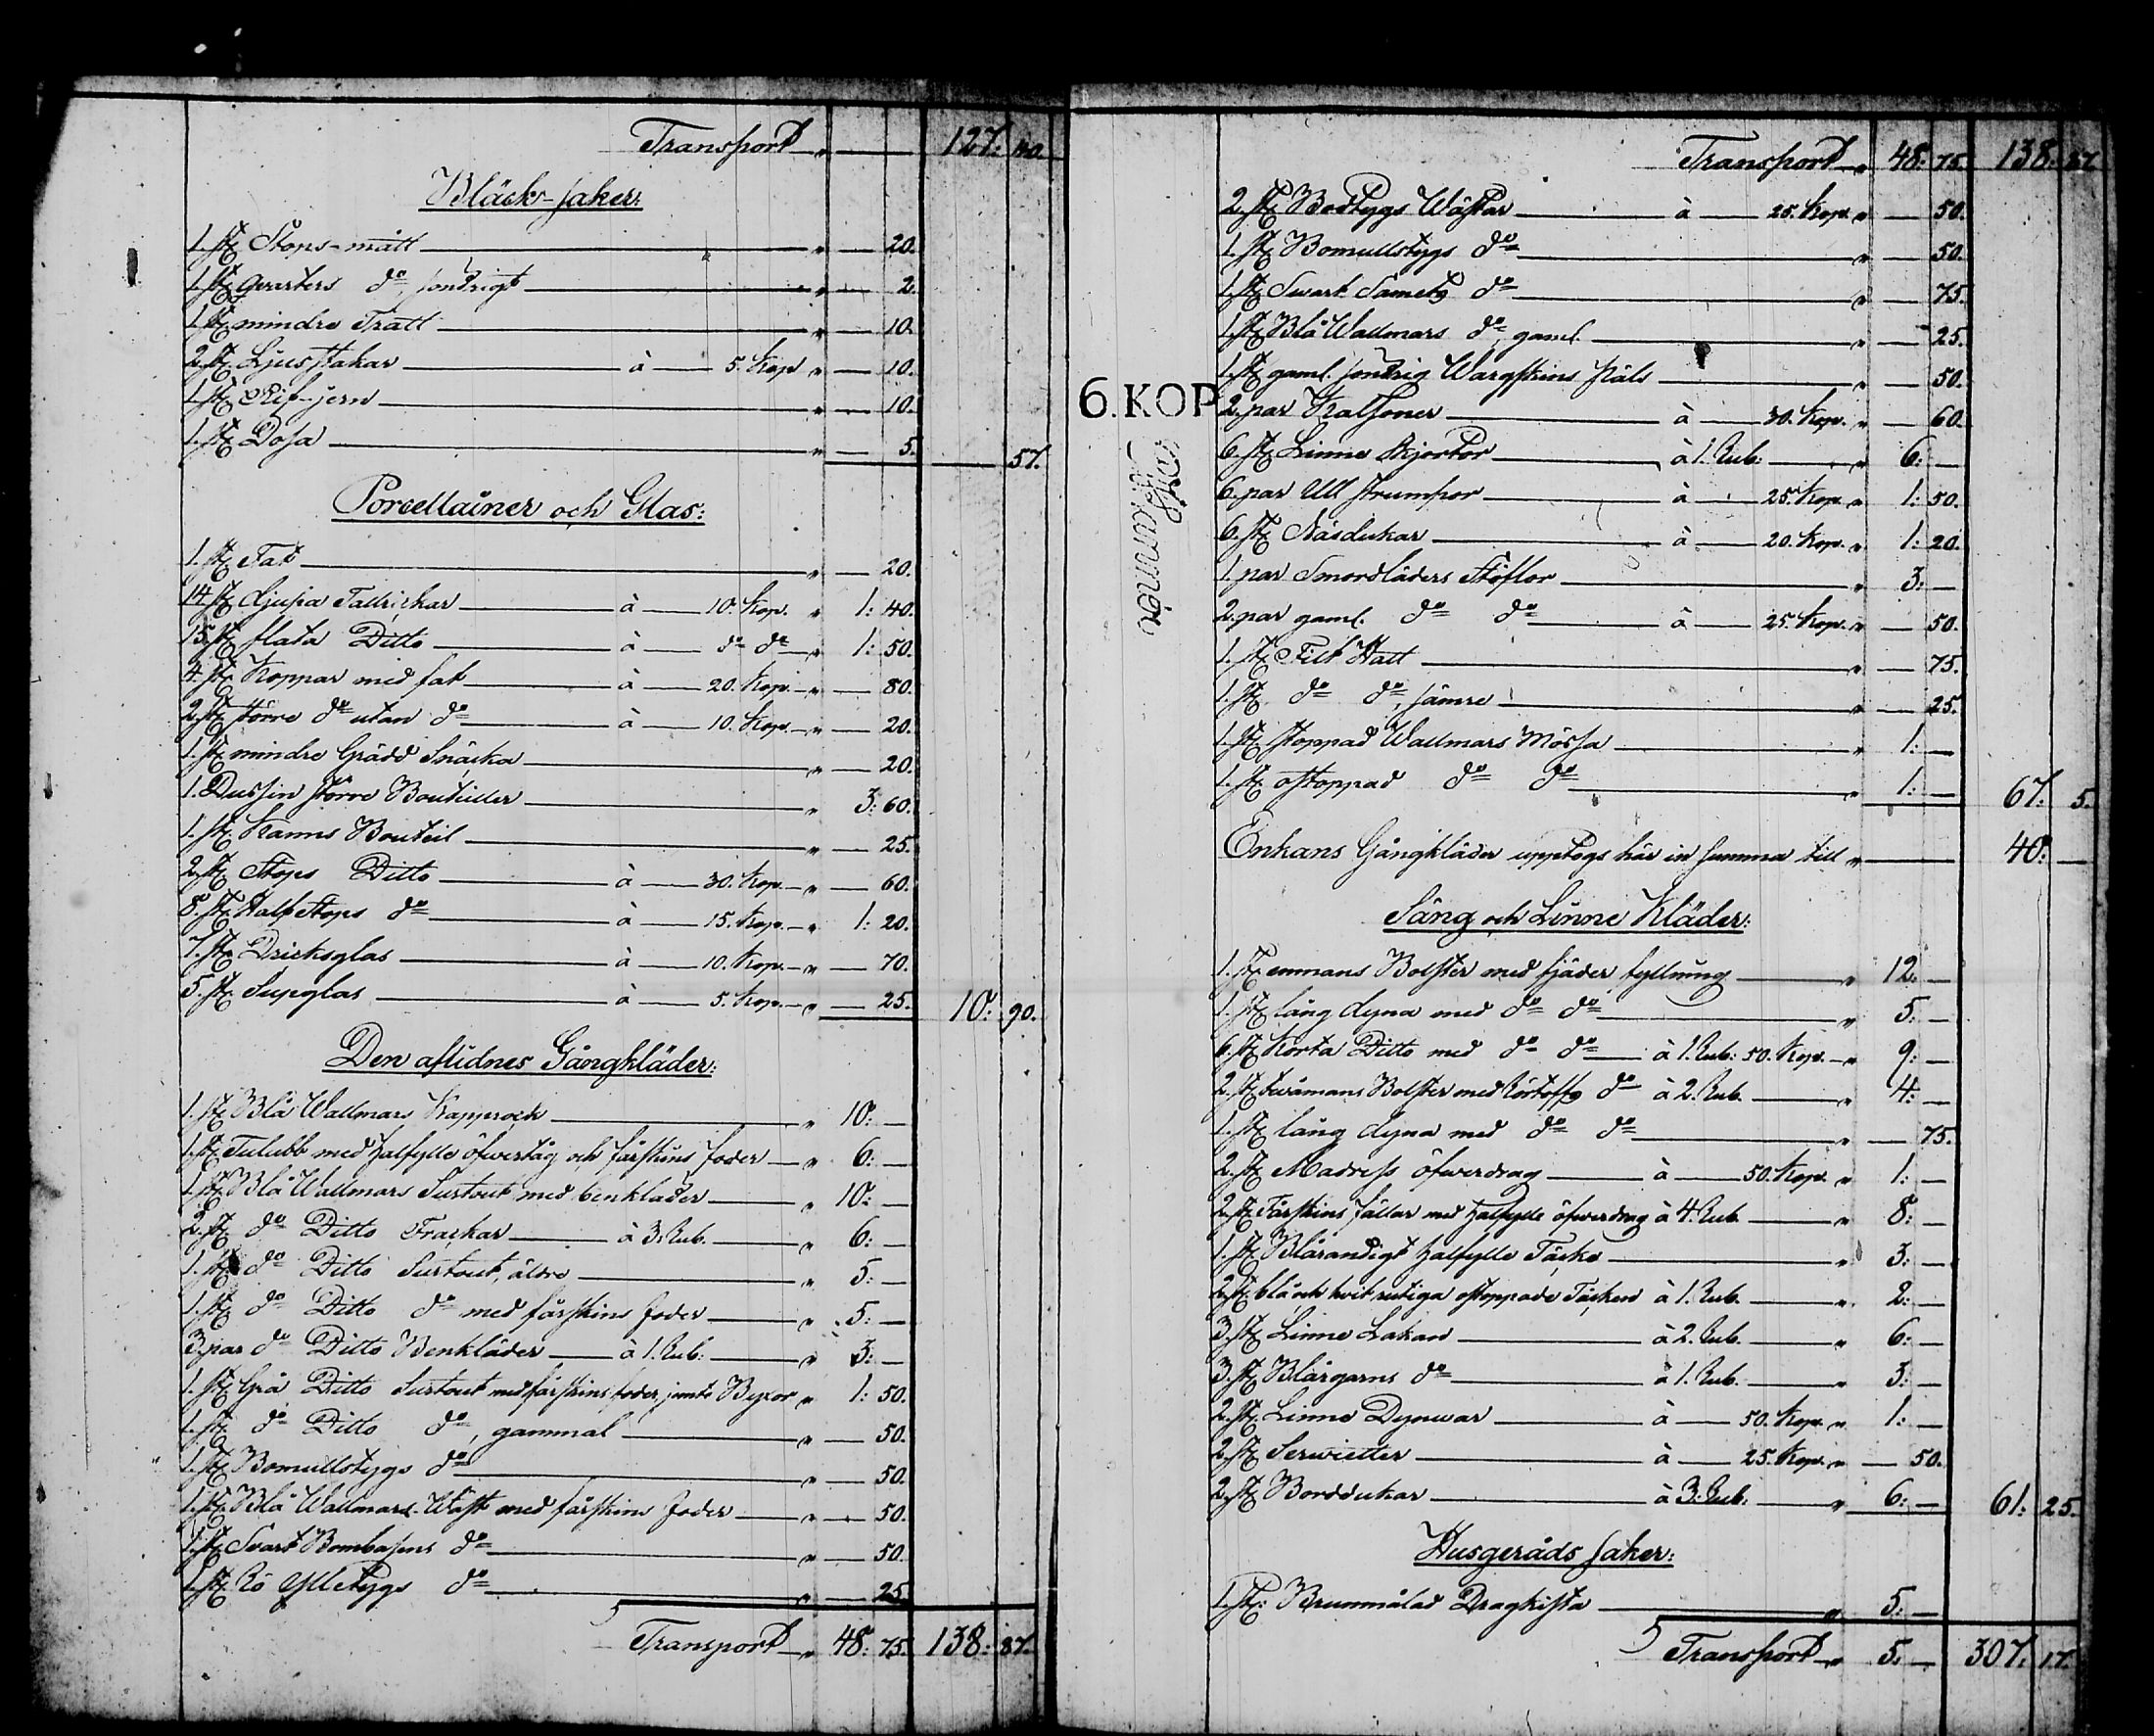 Transport " — 127: 40.
Bläck-saker:
1. st. Stops-mått — " — 20.
1. st. qvarters d:o, söndrigt — " — 2.
1. st. mindre Tratt — " — 10.
2. st. Ljusstakar — à — 5. Kop. " — 10.
1. st. Rif-jern — " — 10.
1. st. Dosa — " — 5. — 57.
Porcellainer och Glas:
1. st. Fat — " — 20.
14. st. djupa Tallrickar — à — 10. Kop. " 1: 40.
15. st. flata Ditto — à — d:o d:o " 1: 50.
4. st. Koppar med fat — à — 20. Kop. — " — 80.
2. st. större d:o utan d:o — à — 10. Kop. — " — 20.
1. st. mindre Grädd Snäcka — " — 20.
1. Dussin större Bouteiller — " 3: 60.
1. st. Kanns Bouteil — " — 25.
2. st. Stops Ditto — à — 30. Kop. — " — 60.
8. st. Half Stops d:o — à — 15. Kop. — " 1: 20.
7. st. Dricksglas — à — 10. Kop. — " — 70.
5. st. Supglas — à — 5. Kop. — " — 25. 10: 90.
Den aflidnes Gångkläder:
1. st. Blå Wallmars Kapprock — " 10: —
1. st. Tulubb med halfylle öfwertåg och fårskins foder — " 6: —
1. st. Blå Wallmars Surtout med benkläder — " 10: —
2. st. d:o Ditto Frackar — à 3. Rub. — " 6: —
1. st. d:o Ditto Surtout, äldre — " 5: —
1. st. d:o Ditto d:o med fårskins foder — " 5: —
3. par d:o Ditto Benkläder — à 1. Rub: — " 3: —
1. st. Grå Ditto Surtout med fårskins foder, jemte Byxor " 1: 50.
1. st. d:o Ditto d:o, gammal — " — 50.
1. st. Bomullstygs d:o — " — 50.
1. st. Blå Wallmars Wäst med fårskins foder — " — 50.
1. st. Svart Bombasens d:o — " — 50.
1. st. Ylletygs d:o — " — 25.
Transport — " 48: 75. 138: 87.
Transport — " 48: 75. 138: 87.
2. st. Wästar — à — 25. Kop. " — 50.
1. st. Bomullstygs d:o — " — 50.
1. st. Swart Samets d:o — " — 75.
1. st. Blå Wallmars d:o, gaml. — " — 25.
1. st. gaml. söndrig Wargskins päls — " — 50.
6. KOP
2. par Kalsoner — à — 30. Kop. " — 60.
6. st. Linne skjortor — à 1. Rub: — " 6: —
6. par Ull strumpor — à — 25. Kop. " 1: 50.
6. st. Näsdukar — à — 20. Kop. " 1: 20.
1. par Smordläders Stöflor — " 3: —
2. par gaml. d:o d:o — à — 25. Kop. " — 50.
1. st. Filt Hatt — " — 75.
1. st. d:o d:o, sämre — " — 25.
1. st. stoppad Wallmars Mössa — " 1: —
1. st. ostoppad d:o d:o — " 1: — 67: 5.
Enkans Gångkläder upptogs här in summa till " — 40: —
Säng och Linne Kläder:
1. st. enmans Bolster med fjäder fyllning — " 12: —
1. st. lång dyna med d:o d:o — " 5: —
6. st. Korta Ditto med d:o d:o — à 1. Rub: 50. Kop. — " 9: —
2. st. twåmans Bolster med d:o à 2. Rub. — " 4: —
1. st. lång dyna med d:o d:o — — 75.
2. st. Madress öfwerdrag — à — 50. Kop. " 1: —
2. st. Fårskins fällar med halfylle öfwerdrag à 4. Rub — " 8: —
1. st. Blårandigt halfylle Täcke — " 3: —
2. st. blå och hvit rutiga ostoppade Täcken à 1. Rub. — " 2: —
3. st. Linne Lakan — à 2. Rub. — " 6: —
3. st. Blårgarns d:o — à 1. Rub. — " 3: —
2. st. Linne Dynwar — à — 50. Kop. " 1: —
2. st. Servietter — à — 25. Kop. " — 50.
2. st. Borddukar — à 3. Rub: — " 6: — 61: 25.
Husgeråds saker:
1. st. Brunmålad Dragkista — " 5: —
Transport — " 5: — 307: 17.